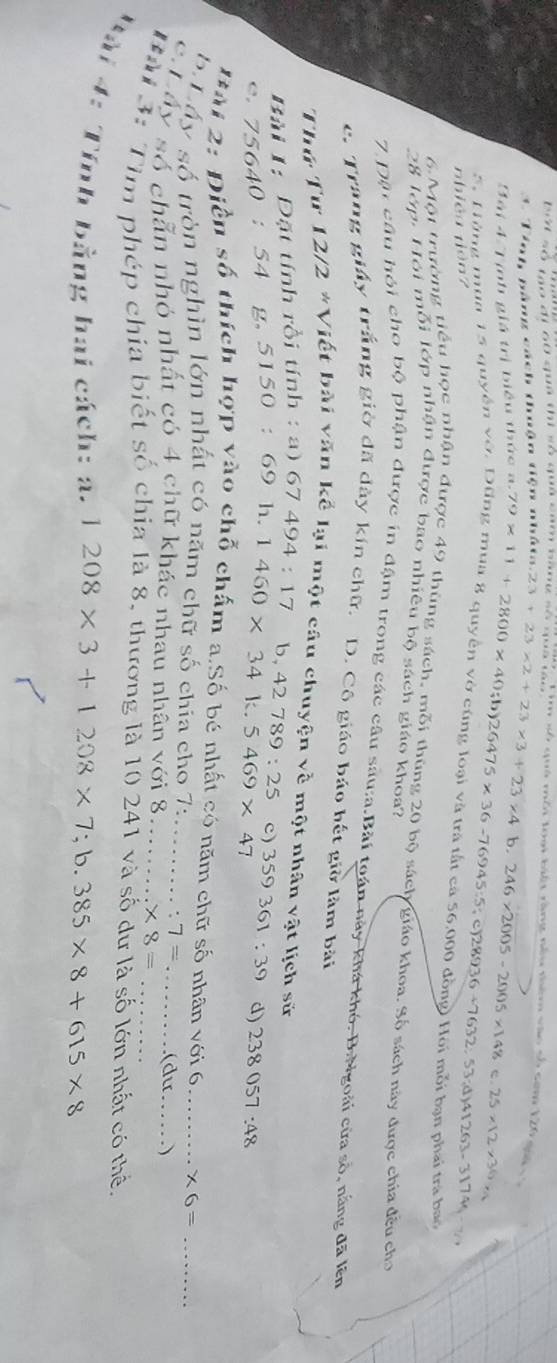 3. Tính bằng cách thuận tiện nhất:a.23 + 23 ×2 + 23 ×3 + 23 ×4 b. 246 ×2005 - 2005 ×148 c. 25 ×12 ×30
Bài 4:Tính giá trị biểu thức a.79 × 11 + 2800 × 40;b)26475 × 36 -76945:5; c)28936 +7632: 53;d)41263- 3174
5. Hồng mua 15 quyển vở, Dũng mua 8 quyển vở cùng loại và trả tất cả 56,000 đồng. Hỏi mỗi bạn phải trả bao
nhiêu tiền?
6.Một trường tiểu học nhận được 49 thùng sách, mỗi thùng 20 bộ sách giáo khoa. Số sách này được chia đều cho
28 lớp. Hỏi mỗi lớp nhận được bao nhiêu bộ sách giáo khoa?
7.Đặt câu hỏi cho bộ phận được in đậm trong các câu sau:a.Bài toán này khá khó. B.Ngoài cửa sổ, nắng đã lên
c. Trang giấy trắng giờ đã dày kín chữ. D. Cô giáo báo hết giờ làm bài
Thứ Tư 12/2 *Viết bài văn kể lại một câu chuyện về một nhân vật lịch sử
Bài 1: Đặt tính rồi tính : a) 67 494 : 17 b, 42 789 : 25 c) 359 361 : 39 d) 238 057 :48
e. 75640 : 54 g, 5150 : 69 h. 1 460 × 34 k. 5 469 × 47
Bài 2: Điền số thích hợp vào chỗ chấm a.Số bé nhất có năm chữ số nhân với 6......... × 6= .........
b.Lấy số tròn nghìn lớn nhất có năm chữ số chia cho 7:.......... : 7 =..........(dư......)
c.Lấy số chẵn nhỏ nhất có 4 chữ khác nhau nhân với 8.........× 8= ..........
Bài 3: Tìm phép chia biết số chia là 8, thương là 10 241 và số dư là số lớn nhất có thể.
Bài 4: Tính bằng hai cách: a. 1 208 × 3 + 1 208 × 7; b. 385 × 8 + 615 × 8